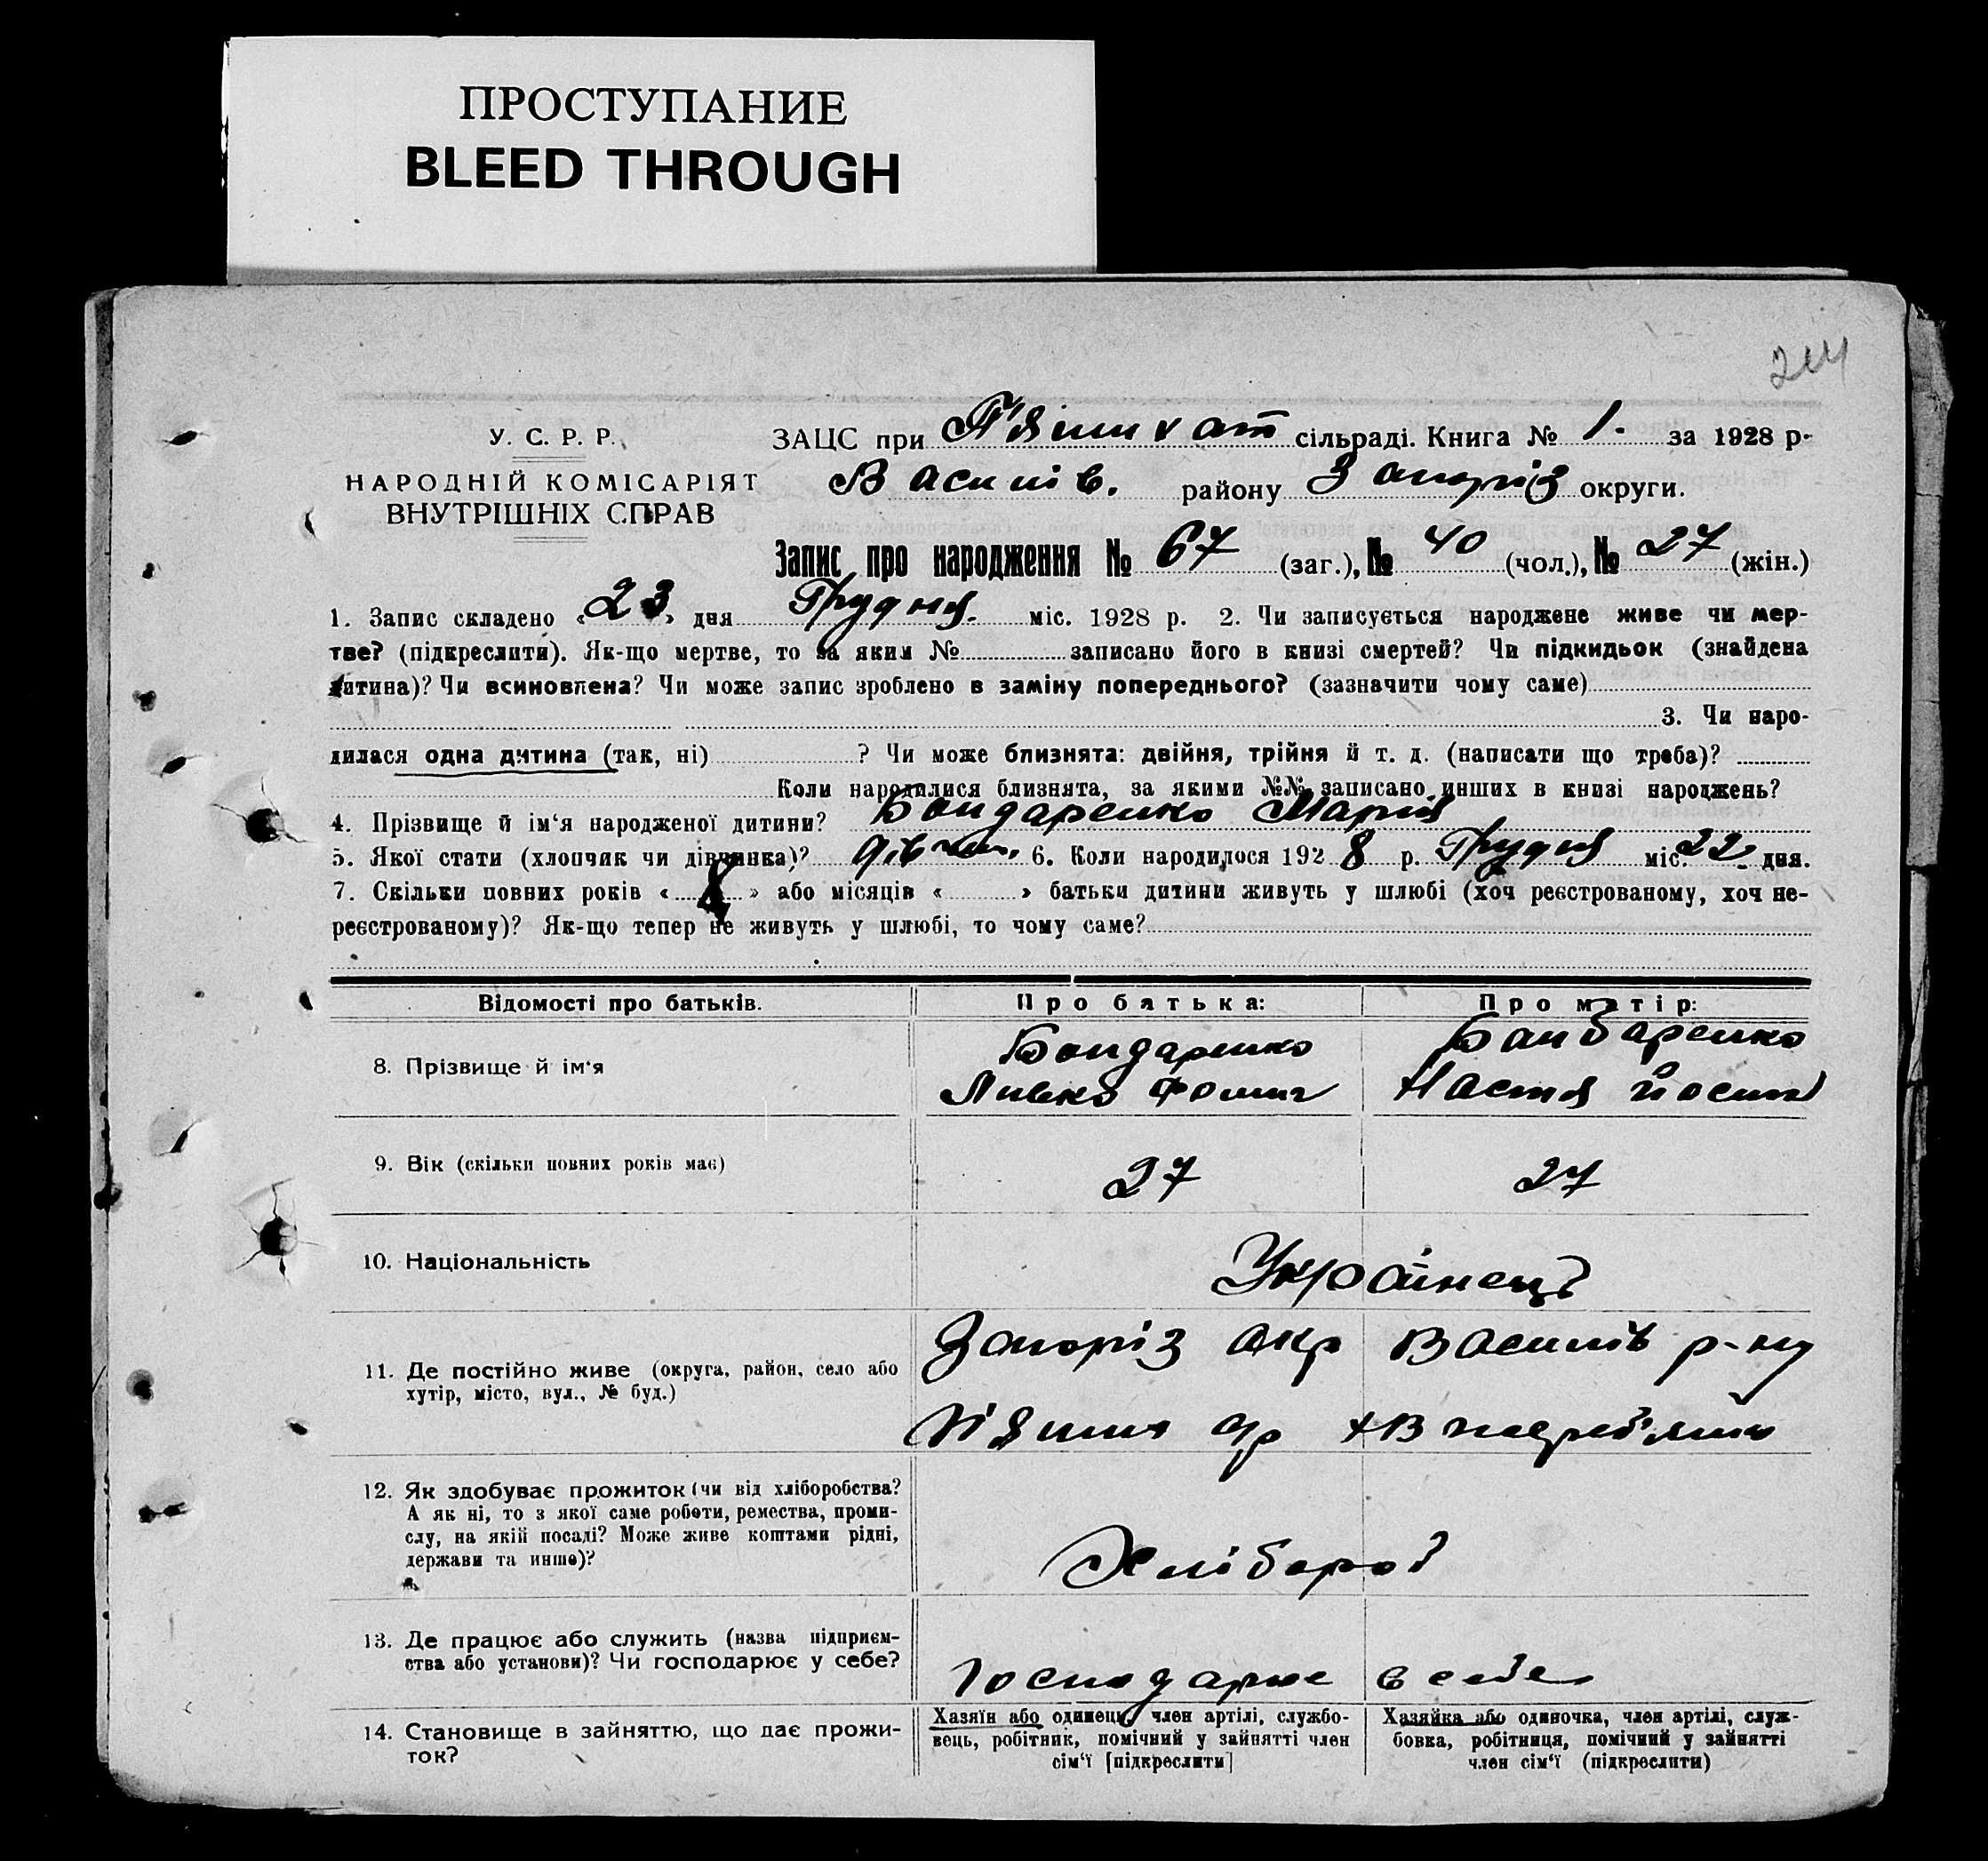 ПРОСТУПАНИЕ
BLEED THROUGH
У. С. Р. Р.
НАРОДНІЙ КОМІСАРІЯТ
ВНУТРІШНІХ СПРАВ
ЗАЦС при сільраді. Книга № 1. за 1928 р.
Василів. району Запоріз округи.
Запис про народження № 67 (заг.), № 40 (чол.), № 27 (жін.)
1. Запис складено « 23 » дня Грудня. міс. 1928 р. 2. Чи записується народжене живе чи мер-
тве? (підкреслити). Як-що мертве, то за яким № записано його в книзі смертей? Чи підкидьок (знайдена
дитина)? Чи всиновлена? Чи може запис зроблено в заміну попереднього? (зазначити чому саме)
3. Чи наро-
дилася одна дитина (так, ні) ? Чи може близнята: двійня, трійня й т. д. (написати що треба)?
Коли народилися близнята, за якими №№ записано инших в книзі народжень?
4. Прізвище й ім‘я народженої дитини? Бондаренко Марія
5. Якої стати (хлопчик чи дівчинка)? дівчин. 6. Коли народилося 192 8 р. Грудня міс. 22 дня.
7. Скільки повних років « » або місяців « » батьки дитини живуть у шлюбі (хоч реєстрованому, хоч не-
реєстрованому)? Як-що тепер не живуть у шлюбі, то чому саме?
Відомості про батьків. Про батька: Про матір:
8. Прізвище й ім‘я
Бондаренко
Бондаренко
Настя Йосип
9. Вік (скільки повних років має) 27 27
10. Національність Українец
11. Де постійно живе (округа, район, село або
хутір, місто, вул., № буд.)
Запоріз окр Василів р-ну
12. Як здобуває прожиток (чи від хліборобства?
А як ні, то з якої саме роботи, ремества, проми-
слу, на якій посаді? Може живе коштами рідні,
держави та инше)?
Хлібороб
13. Де працює або служить (назва підприєм-
ства або установи)? Чи господарює у себе?
Господарює в себе
14. Становище в зайняттю, що дає прожи-
ток?
Хазяїн або одинець, член артілі, службо-
вець, робітник, помічний у зайнятті член
сім‘ї [підкреслити]
Хазяйка або одиночка, член артілі, служ-
бовка, робітниця, помічний у зайнятті
член сім‘ї (підкреслити)